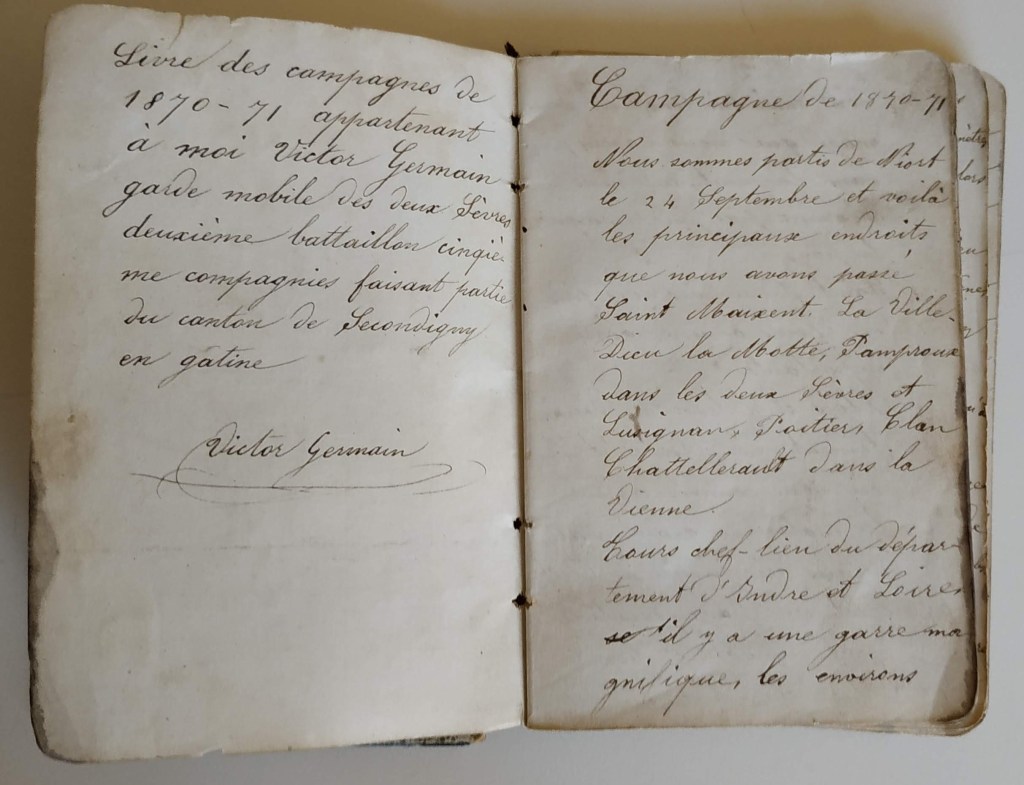 Livre des campagnes de
1870-71 appartenant
à moi Victor Germain
garde mobile des deux Sèvres
deuxième battaillon cinqiè-
me compagnies faisant partie
du canton de Secondigny
en gâtine
Victor Germain
Campagne de 1870-71
Nous sommes partis de Niort
le 24 Septembre et voilà
les principaux endroits
que nous avons passé
Saint Maixent. La Ville-
Dieu la Motte, Pamproux
dans les deux Sèvres et
Lusignan, Poitiers, Clan
Chattellerault dans la
Vienne
Tours chef-lieu du dépar-
tement d'Indre et Loire,
il y a une garre ma
gnifique, les environs